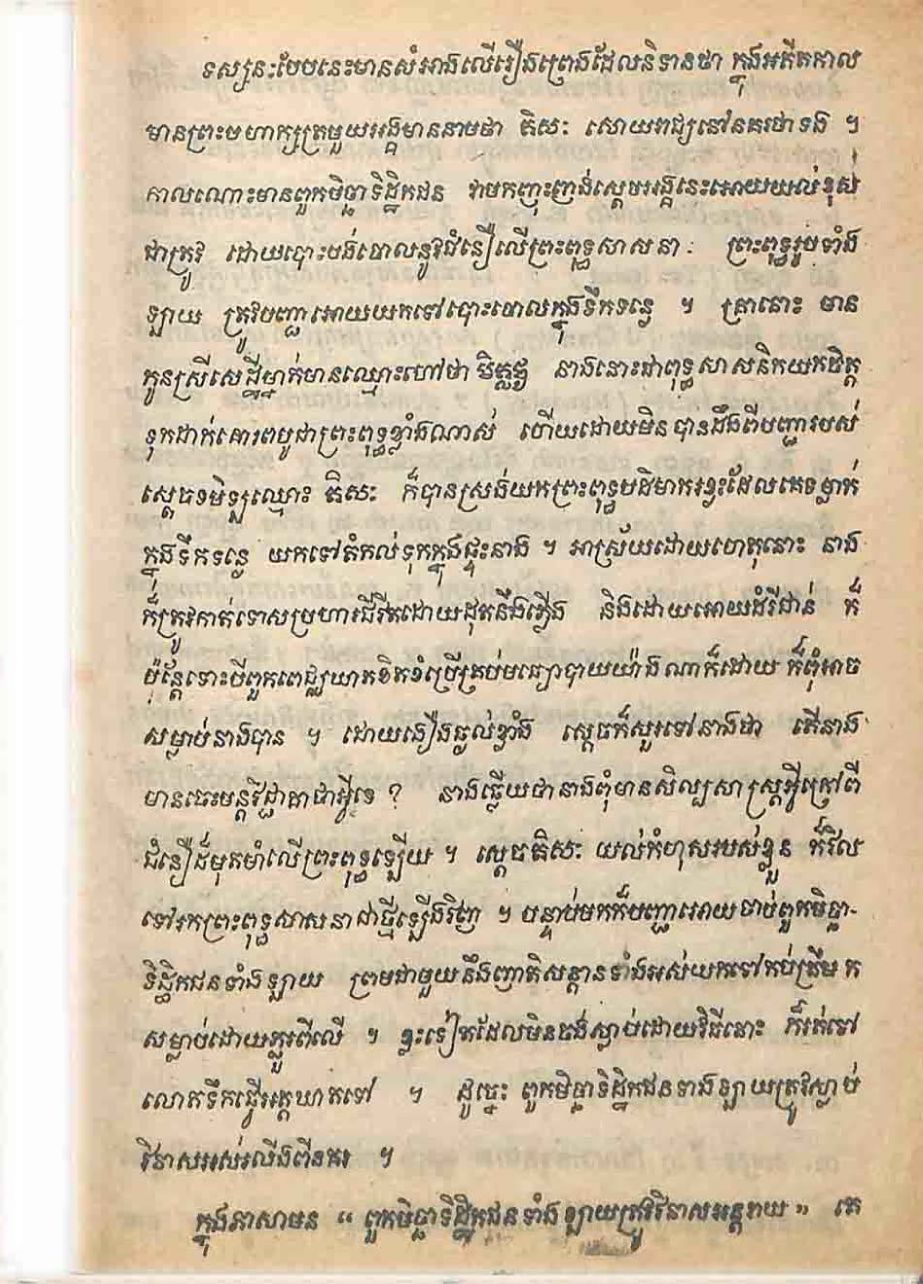 ទស្សនៈបែបនេះមានសំអាងលើរឿងព្រេងដែលនិទានថា ក្នុងអតីតកាល
មានព្រះមហាក្សត្រមួយអង្គមាននាមថា តិសៈ សោយរាជ្យនៅនគរថាទង ។
កាលណោះមានពួកមិច្ឆាទិដ្ឋិកជន វាមកញុះញង់ស្តេចអង្គនេះអោយយល់ខុស
ជាត្រូវ ដោយបោះបង់ចោលនូវជំនឿលើព្រះពុទ្ធសាសនា : ព្រះពុទ្ធរូបទាំង
ឡាយ ត្រូវបញ្ជាអោយយកទៅបោះចោលក្នុងទឹកទន្លេ ។ គ្រានោះ មាន
កូនស្រីសេដ្ឋីម្នាក់មានឈ្មោះហៅថា នាងនោះជាពុទ្ធសាសនិកយកចិត្ត
ទុកដាក់គោរពបូជាព្រះពុទ្ធខ្លាំងណាស់ ហើយដោយមិនបានដឹងពីបញ្ជារបស់
ស្តេចទមិឡឈ្មោះ តិសៈ ក៏បានស្រង់យកព្រះពុទ្ធបដិមាករខ្លះដែលគេទម្លាក់
ក្នុងទឹកទន្លេ យកទៅតំកល់ទុកក្នុងផ្ទះនាង ។ អាស្រ័យដោយហេតុនោះ នាង
ក៏ត្រូវកាត់ទោសប្រហារជីវិតដោយដុតនឹងភ្លើង និងដោយអោយដំរីជាន់ ក៏
ប៉ុន្តែទោះបីពួកពេជ្ឈឃាតខិតខំប្រើគ្រប់មធ្យោបាយយ៉ាងណាក៏ដោយ ក៏ពុំអាច
សម្លាប់នាងបាន ។ ដោយងឿងឆ្ងល់ខ្លាំង ស្តេចក៏សួរទៅនាងថា តើនាង
មានចេះមន្តវិជ្ជាគាថាអ្វីទេ ? នាងឆ្លើយថានាងពុំមានសិល្បសាស្ត្រអ្វីក្រៅពី
ជំនឿដ៏មុតមាំលើព្រះពុទ្ធឡើយ ។ ស្តេចតិសៈ យល់កំហុសរបស់ខ្លួន ក៏វិល
ទៅរកព្រះពុទ្ធសាសនាជាថ្មីឡើងវិញ ។ បន្ទាប់មកក៏បញ្ជាអោយចាប់ពួកមិច្ឆា-
ទិដ្ឋិកជនទាំងឡាយ ព្រមជាមួយនឹងញាតិសន្តានទាំងអស់យកទៅកប់ត្រឹម ក
សម្លាប់ដោយភ្ជួរពីលើ ។ ខ្លះទៀតដែលមិនចង់ស្លាប់ដោយវិធីនោះ ក៏រត់ទៅ
លោតទឹកធ្វើអត្តឃាតទៅ ។ ដូច្នេះ ពួកមិច្ឆាទិដ្ឋិកជនទាងឡាយត្រូវស្លាប់
វិនាសអស់រលីងពីនគរ ។
ក្នុងភាសាមន “ ពួកមិច្ឆាទិដ្ឋិកជនទាំងឡាយត្រូវវិនាសអន្តរាយ » គេ